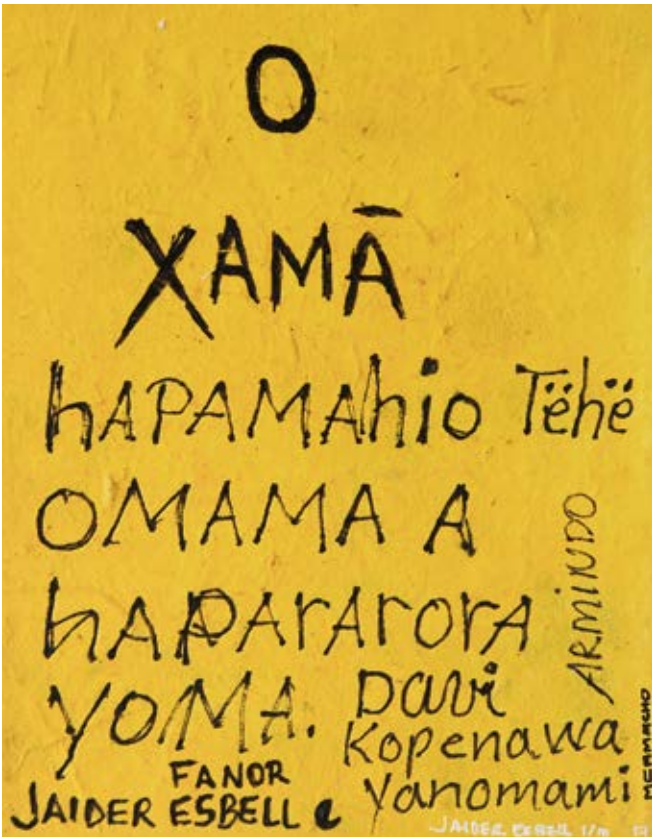 O
XAMĀ
hAPAMAhio Tëhë
OMAMA A
hAPArArorA
YOMA.
Davi
Kopenawa
Yanomami
ARMINDO
FANOR
JAIDER ESBELL e
JAIDER ESBELL